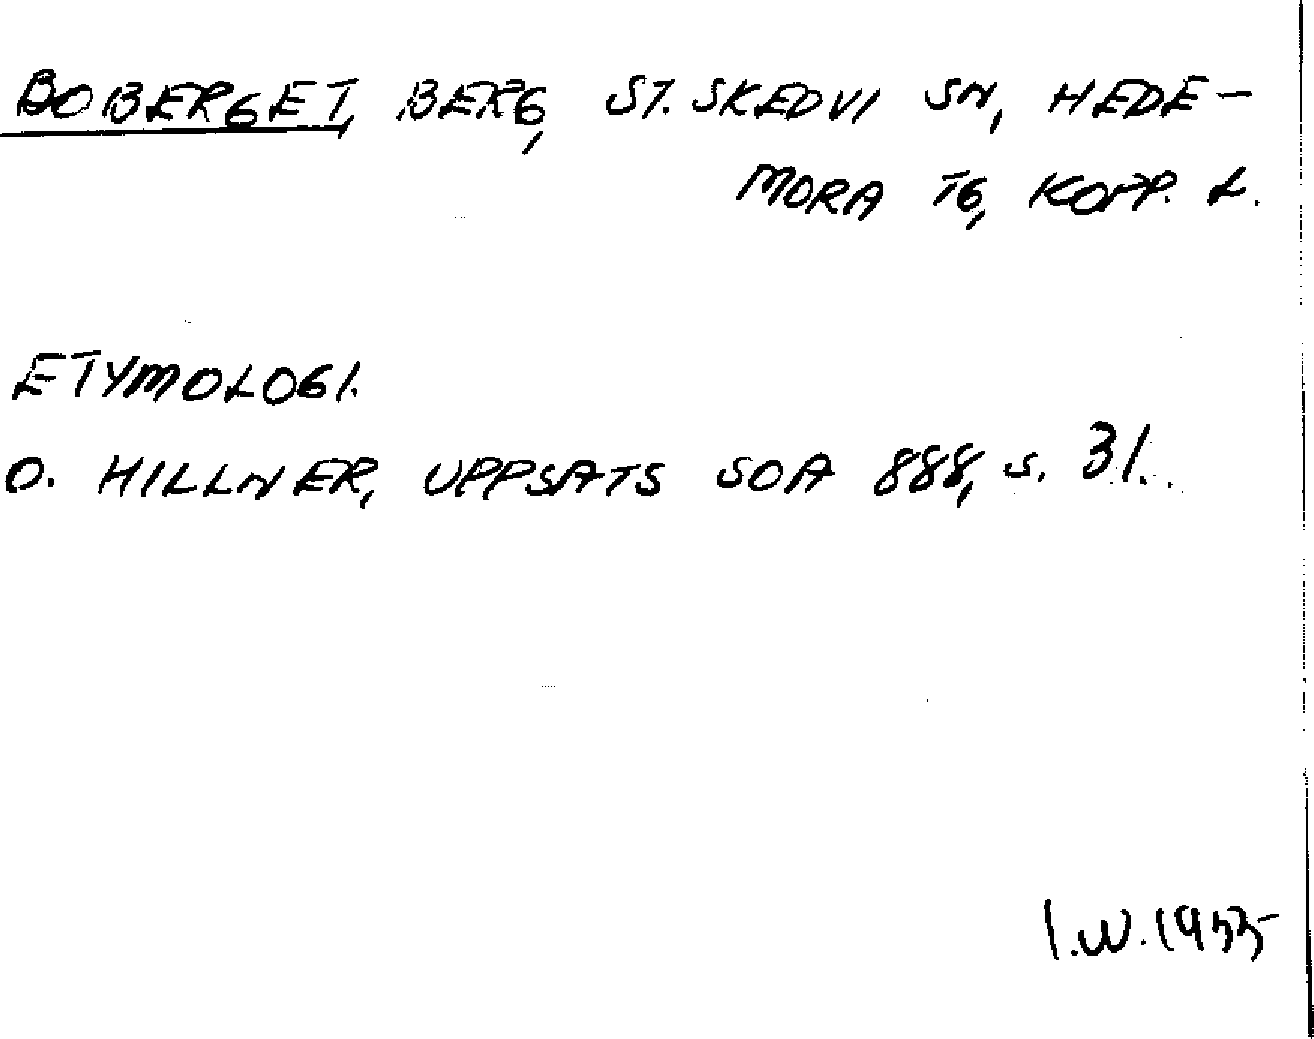 BOBERGET, BERG, ST. SKEDVI SN, HEDE-
MORA TG, KOPP. L.
ETYMOLOGI.
O. HILLNER, UPPSATS SOA 888, s. 31.
I.W. 1955